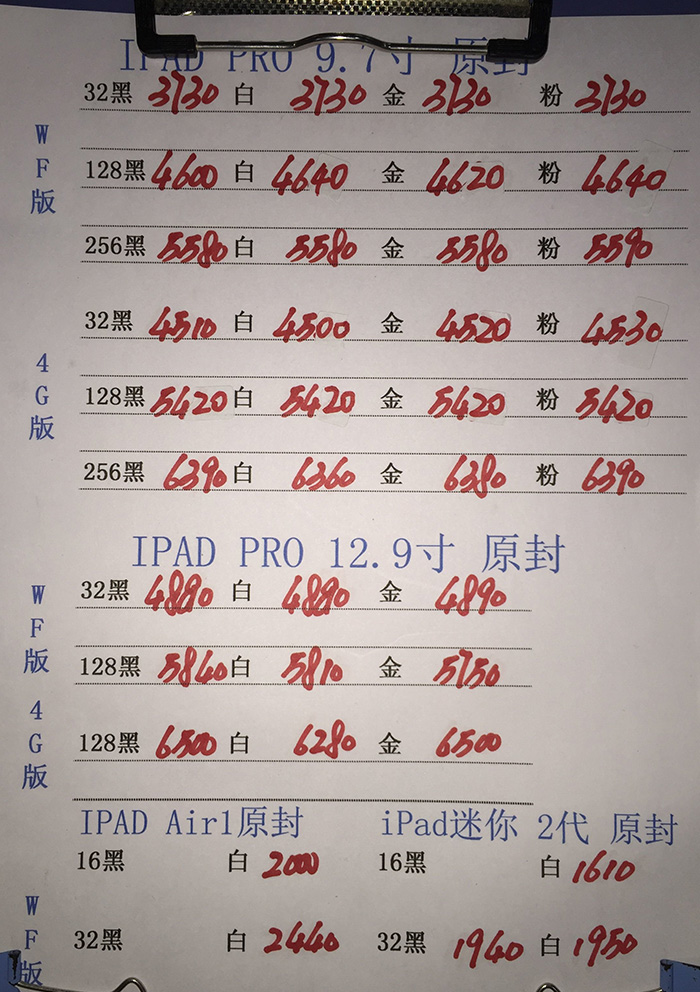 IPAD PRO 9.7寸 原封
WF版
32黑 3730 白 3730 金 3730 粉 3730
128黑 4600 白 4640 金 4620 粉 4640
256黑 5580 白 5580 金 5580 粉 5590
4G版
32黑 4510 白 4500 金 4520 粉 4530
128黑 5420 白 5420 金 5420 粉 5420
256黑 6390 白 6360 金 6380 粉 6390
IPAD PRO 12.9寸 原封
WF版
32黑 4890 白 4890 金 4890
128黑 5840 白 5810 金 5750
4G版
128黑 6500 白 6280 金 6500
IPAD Air1原封 iPad迷你 2代 原封
WF版
16黑 白 2000 16黑 白 1610
32黑 白 2440 32黑 1940 白 1950